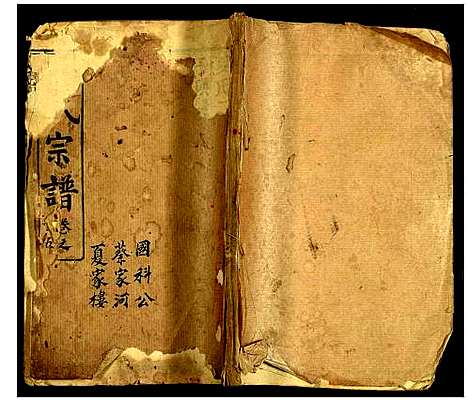 國科公
蔡家河
夏家樓
宗譜
卷之